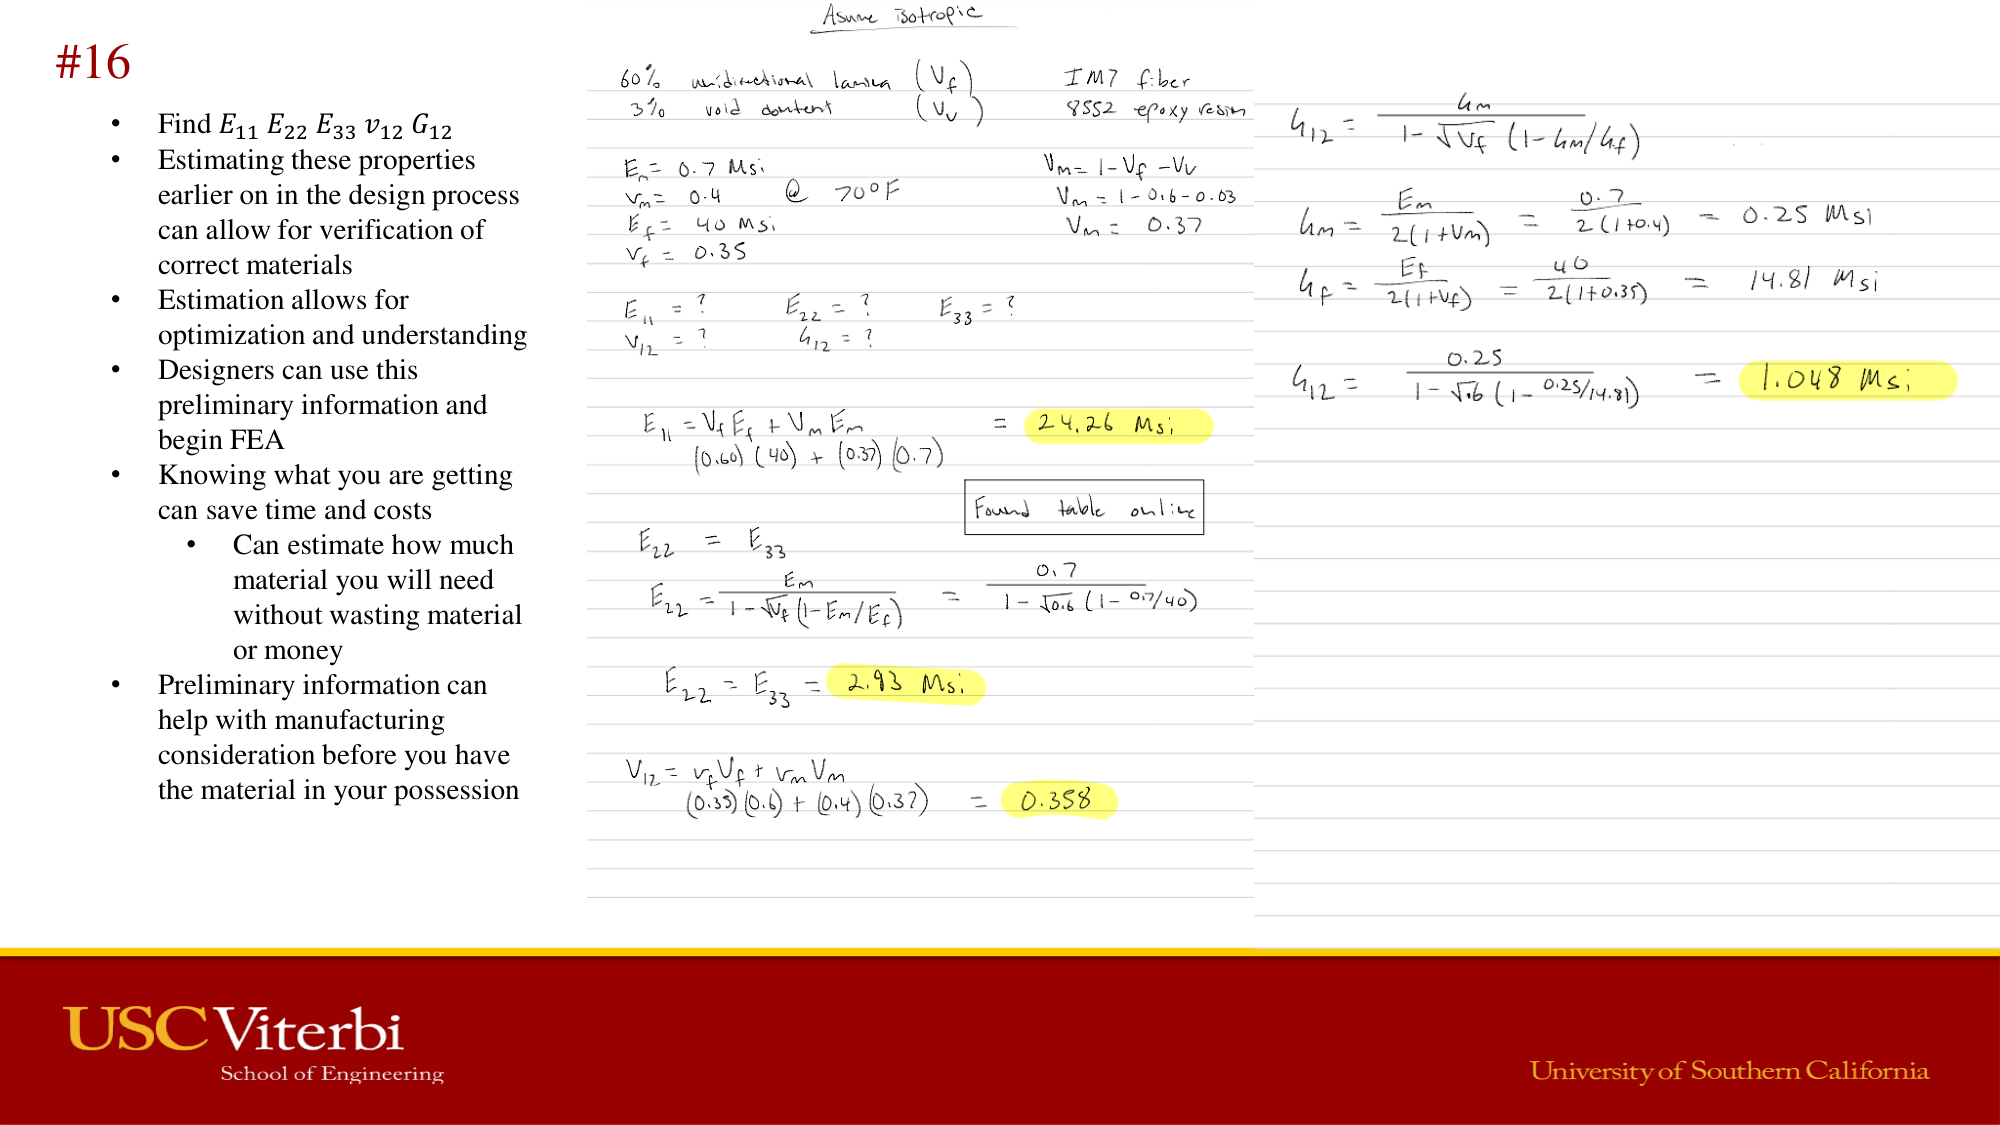 #16
• Find E₁₁ E₂₂ E₃₃ v₁₂ G₁₂
• Estimating these properties
earlier on in the design process
can allow for verification of
correct materials
• Estimation allows for
optimization and understanding
• Designers can use this
preliminary information and
begin FEA
• Knowing what you are getting
can save time and costs
• Can estimate how much
material you will need
without wasting material
or money
• Preliminary information can
help with manufacturing
consideration before you have
the material in your possession
Asume Isotropic
60% unidirectional lamina (Vf) IM7 fiber
3% void content (Vv) 8552 epoxy resin
Em = 0.7 Msi Vm = 1 - Vf - Vv
vm = 0.4 @ 70°F Vm = 1 - 0.6 - 0.03
Ef = 40 Msi Vm = 0.37
vf = 0.35
E₁₁ = ? E₂₂ = ? E₃₃ = ?
v₁₂ = ? G₁₂ = ?
E₁₁ = Vf Ef + Vm Em = 24.26 Msi
(0.60)(40) + (0.37)(0.7)
Found table online
E₂₂ = E₃₃
E₂₂ = Em / (1 - √Vf (1 - Em/Ef)) = 0.7 / (1 - √0.6 (1 - 0.7/40))
E₂₂ = E₃₃ = 2.93 Msi
V₁₂ = vf Vf + vm Vm
(0.35)(0.6) + (0.4)(0.37) = 0.358
G₁₂ = Gm / (1 - √Vf (1 - Gm/Gf))
Gm = Em / 2(1 + Vm) = 0.7 / 2(1+0.4) = 0.25 Msi
Gf = Ef / 2(1 + Vf) = 40 / 2(1+0.35) = 14.81 Msi
G₁₂ = 0.25 / (1 - √.6 (1 - 0.25/14.81)) = 1.048 Msi
USC Viterbi
School of Engineering
University of Southern California